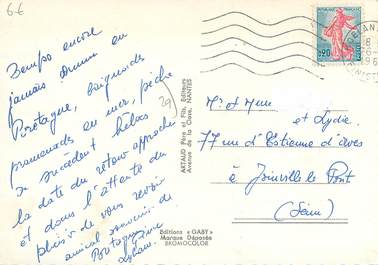 6-6
Temps encore
jamais connu en
Bretagne, baignades
promenades en mer, pêche
se succèdent hélas
la date du retour approche
et dans l'attente du
plaisir de vous revoir
amical souvenir de
Bretagne
29
ARTAUD Père et Fils, Editeurs
Avenue de la Close, NANTES
Editions « GABY »
Marque Déposée
BROMOCOLOR
0,20
Mr et Mme
et Lydie
77 rue d'Estienne d'Orves
à Joinville le Pont
(Seine)